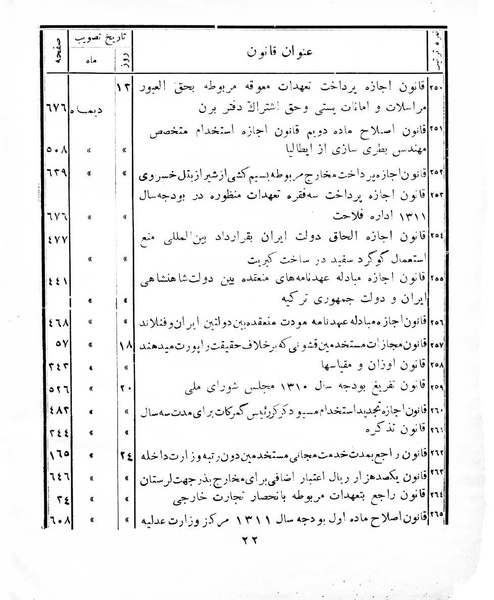 نمره ترتیب عنوان قانون تاریخ تصویب صفحه
روز ماه
۲۵۰ قانون اجازه پرداخت تعهدات معوقه مربوطه بحق العبور ۱۲
مراسلات و امانات پستی وحق اشتراک دفتر برن دیماه ۶۷۶
۲۵۱ قانون اصلاح ماده دویم قانون اجازه استخدام متخصص
مهندس بطری سازی از ایطالیا » » ۵۰۸
۲۵۲ قانون اجازه پرداخت مخارج مربوطه بسیم کشی از شیراز بتل خسروی » » ۶۳۹
۲۵۳ قانون اجازه پرداخت سه فقره تعهدات منظوره در بودجه سال
۱۳۱۱ اداره فلاحت » » ۶۷۶
۲۵۴ قانون اجازه الحاق دولت ایران بقرارداد بین‌المللی منع ۴۷۷
استعمال گوگرد سفید در ساخت کبریت » »
۲۵۵ قانون اجازه مبادله عهدنامه‌های منعقده بین دولت شاهنشاهی ۴۴۱
ایران و دولت جمهوری ترکیه » »
۲۵۶ قانون اجازه مبادله عهدنامه مودت منعقده بین دولتین ایران و فنلاند » » ۴۶۸
۲۵۷ قانون مجازات مستخدمین قشونی که برخلاف حقیقت راپورت میدهند ۱۸ » ۵۷
۲۵۸ قانون اوزان و مقیاسها » » ۲۴۳
۲۵۹ قانون تفریغ بودجه سال ۱۳۱۰ مجلس شورای ملی ۲۰ » ۵۲۶
۲۶۰ قانون اجازه تجدید استخدام مسیو دکرکر رئیس گمرکات برای مدت سه سال » » ۴۸۲
۲۶۱ قانون تذکره » » ۲۴۴
۲۶۲ قانون راجع بمدت خدمت مجانی مستخدمین دون رتبه وزارت داخله ۲۴ » ۱۶۵
۲۶۳ قانون یکصد هزار ریال اعتبار اضافی برای مخارج بذر جهت لرستان » » ۶۴۶
۲۶۴ قانون راجع بتعهدات مربوطه بانحصار تجارت خارجی » » ۲۴
۲۶۵ قانون اصلاح ماده اول بودجه سال ۱۳۱۱ مرکز وزارت عدلیه » » ۶۰۸
۲۲